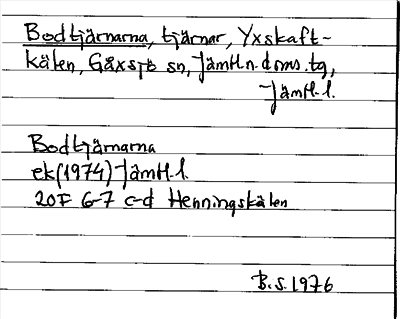 Bodtjärnarna, tjärnar, Yxskaft-
kälen, Gåxsjö sn, Jämtl.n.doms.tg,
Jämtl.l.
Bodtjärnarna
ek(1974) Jämtl.l.
20F 6-7 c-d Henningskälen
B.S.1976